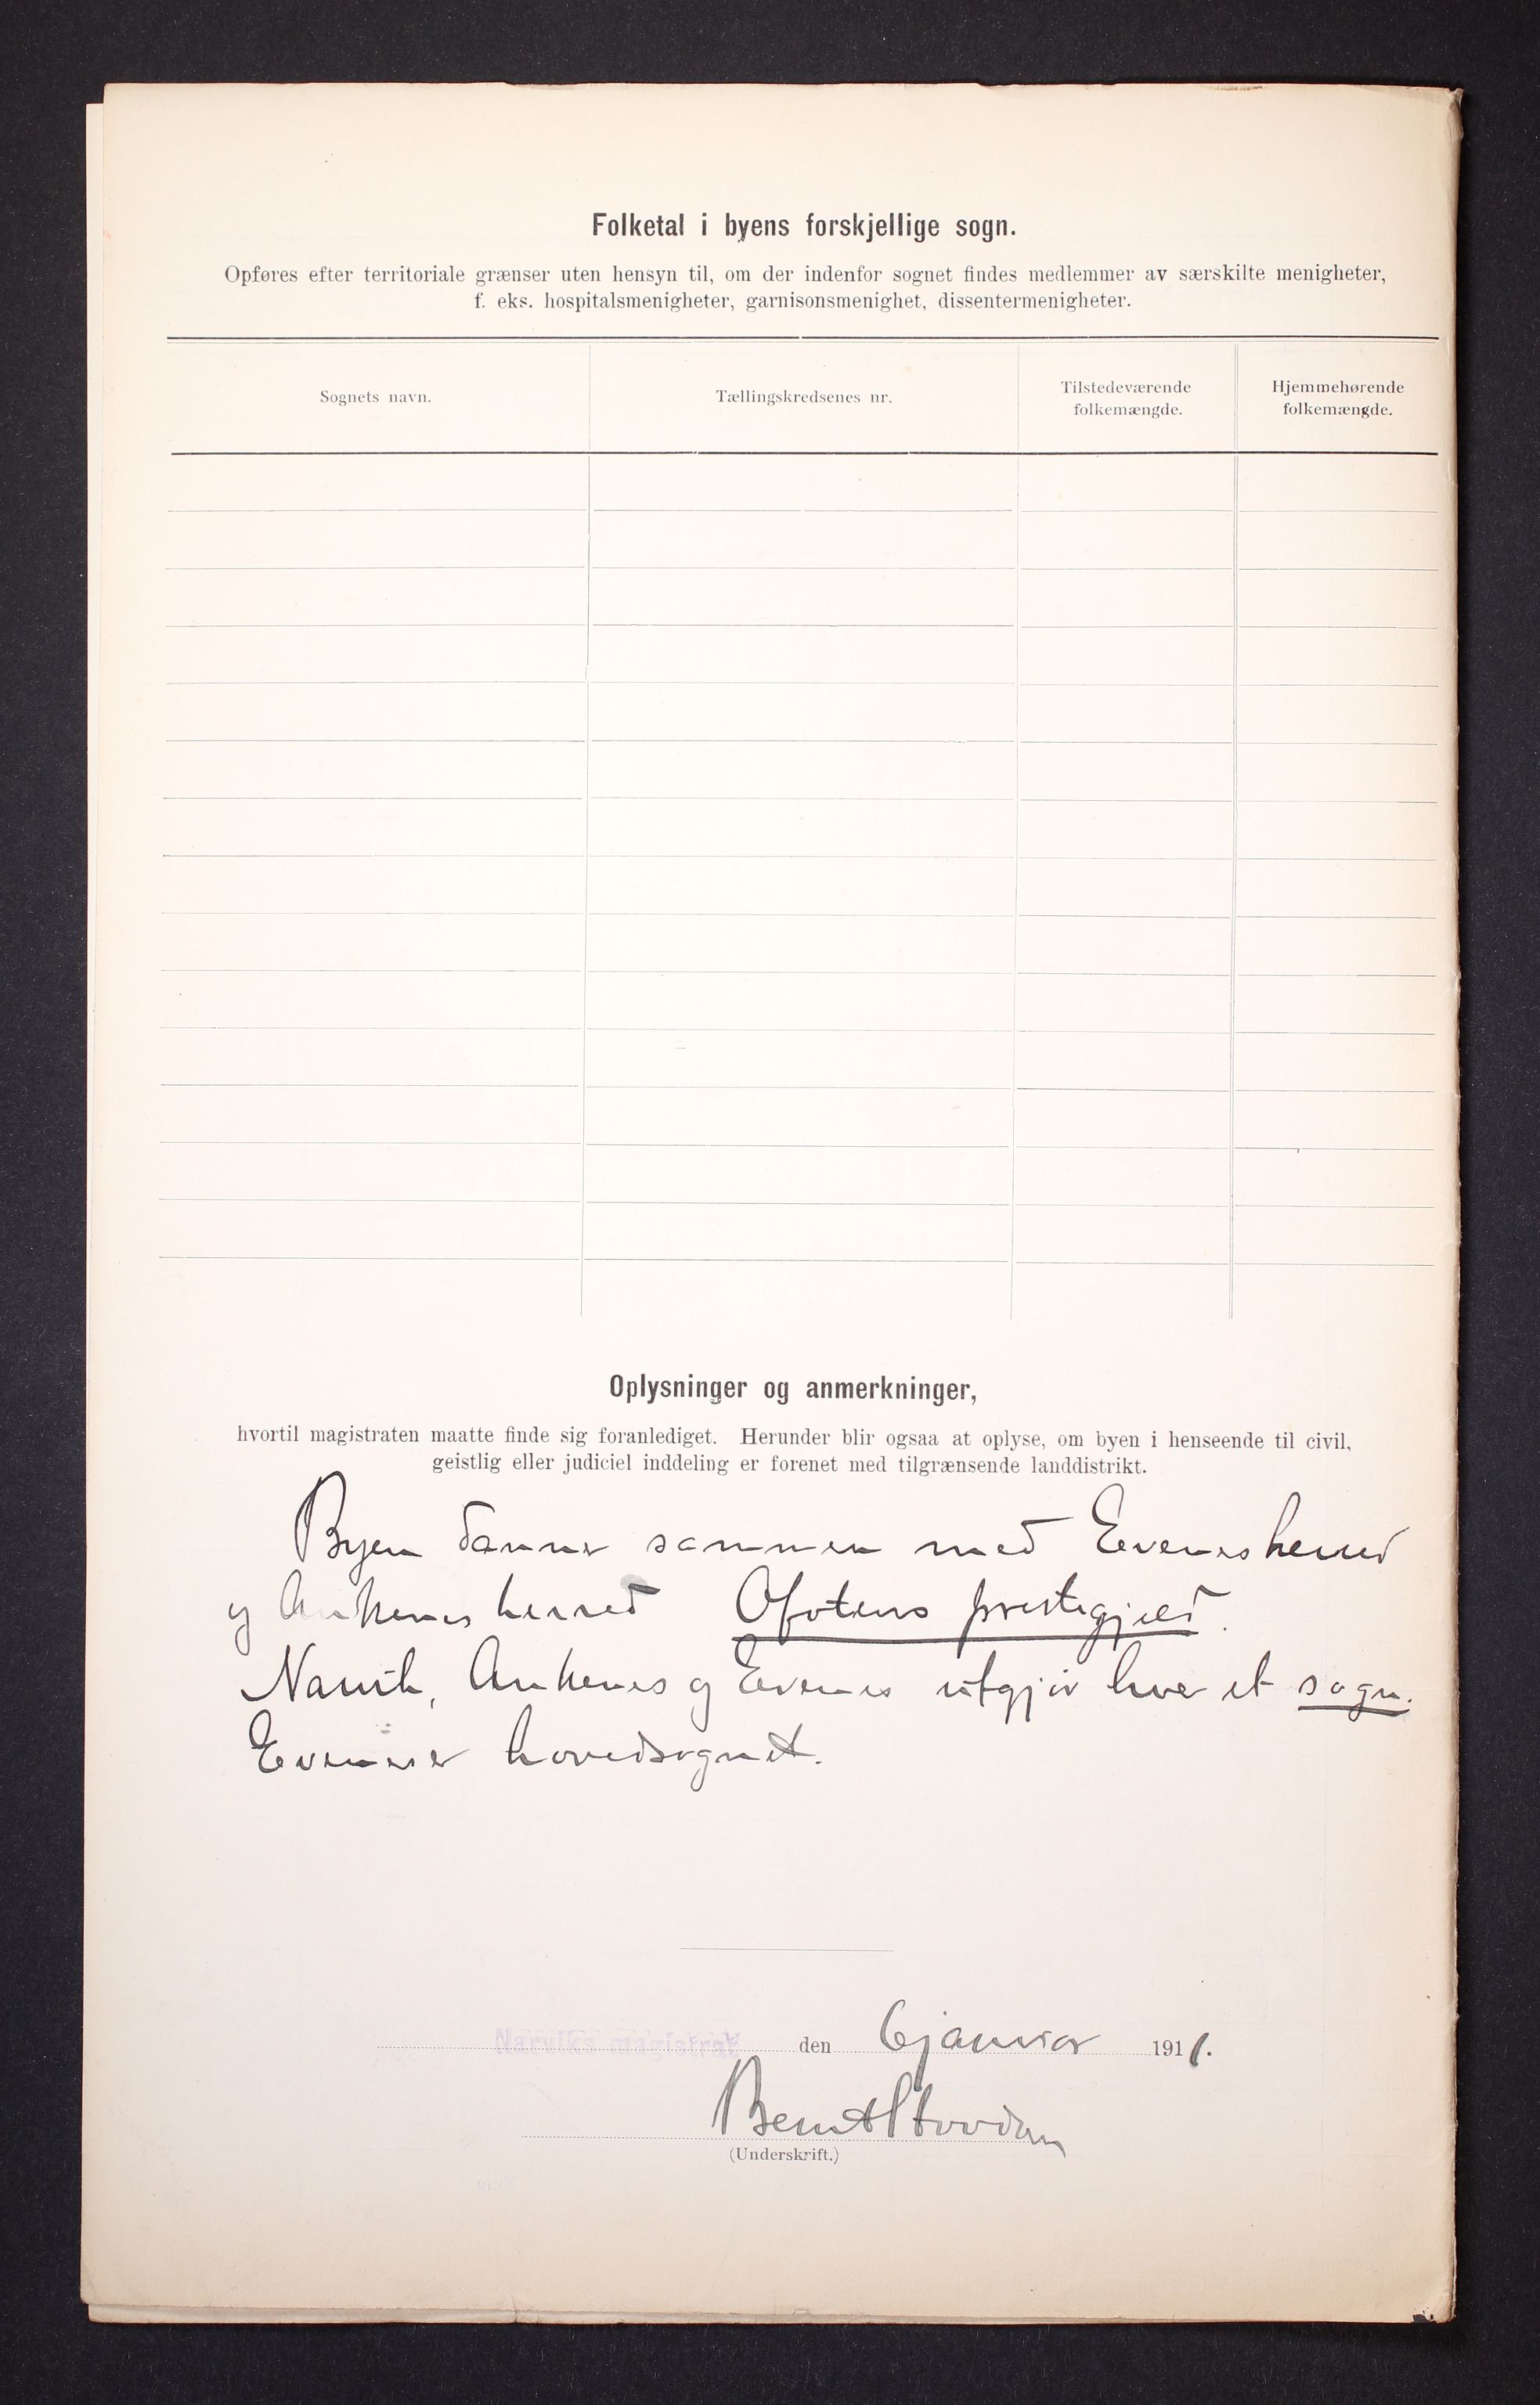 Folketal i byens forskjellige sogn.
Opføres efter territoriale grænser uten hensyn til, om der indenfor sognet findes medlemmer av særskilte menigheter,
f. eks. hospitalsmenigheter, garnisonsmenighet, dissentermenigheter.
Sognets navn. Tællingskredsenes nr. Tilstedeværende folkemængde. Hjemmehørende folkemængde.
Oplysninger og anmerkninger,
hvortil magistraten maatte finde sig foranlediget. Herunder blir ogsaa at oplyse, om byen i henseende til civil,
geistlig eller judiciel inddeling er forenet med tilgrænsende landdistrikt.
Byen danner sammen med Evenes herred
og Ankenes herred Ofotens prestegjeld.
Narvik, Ankenes og Evenes utgjør hver et sogn.
Evenes er hovedsognet.
Narviks magistrat den 6 januar 1911.
Bernt
(Underskrift.)